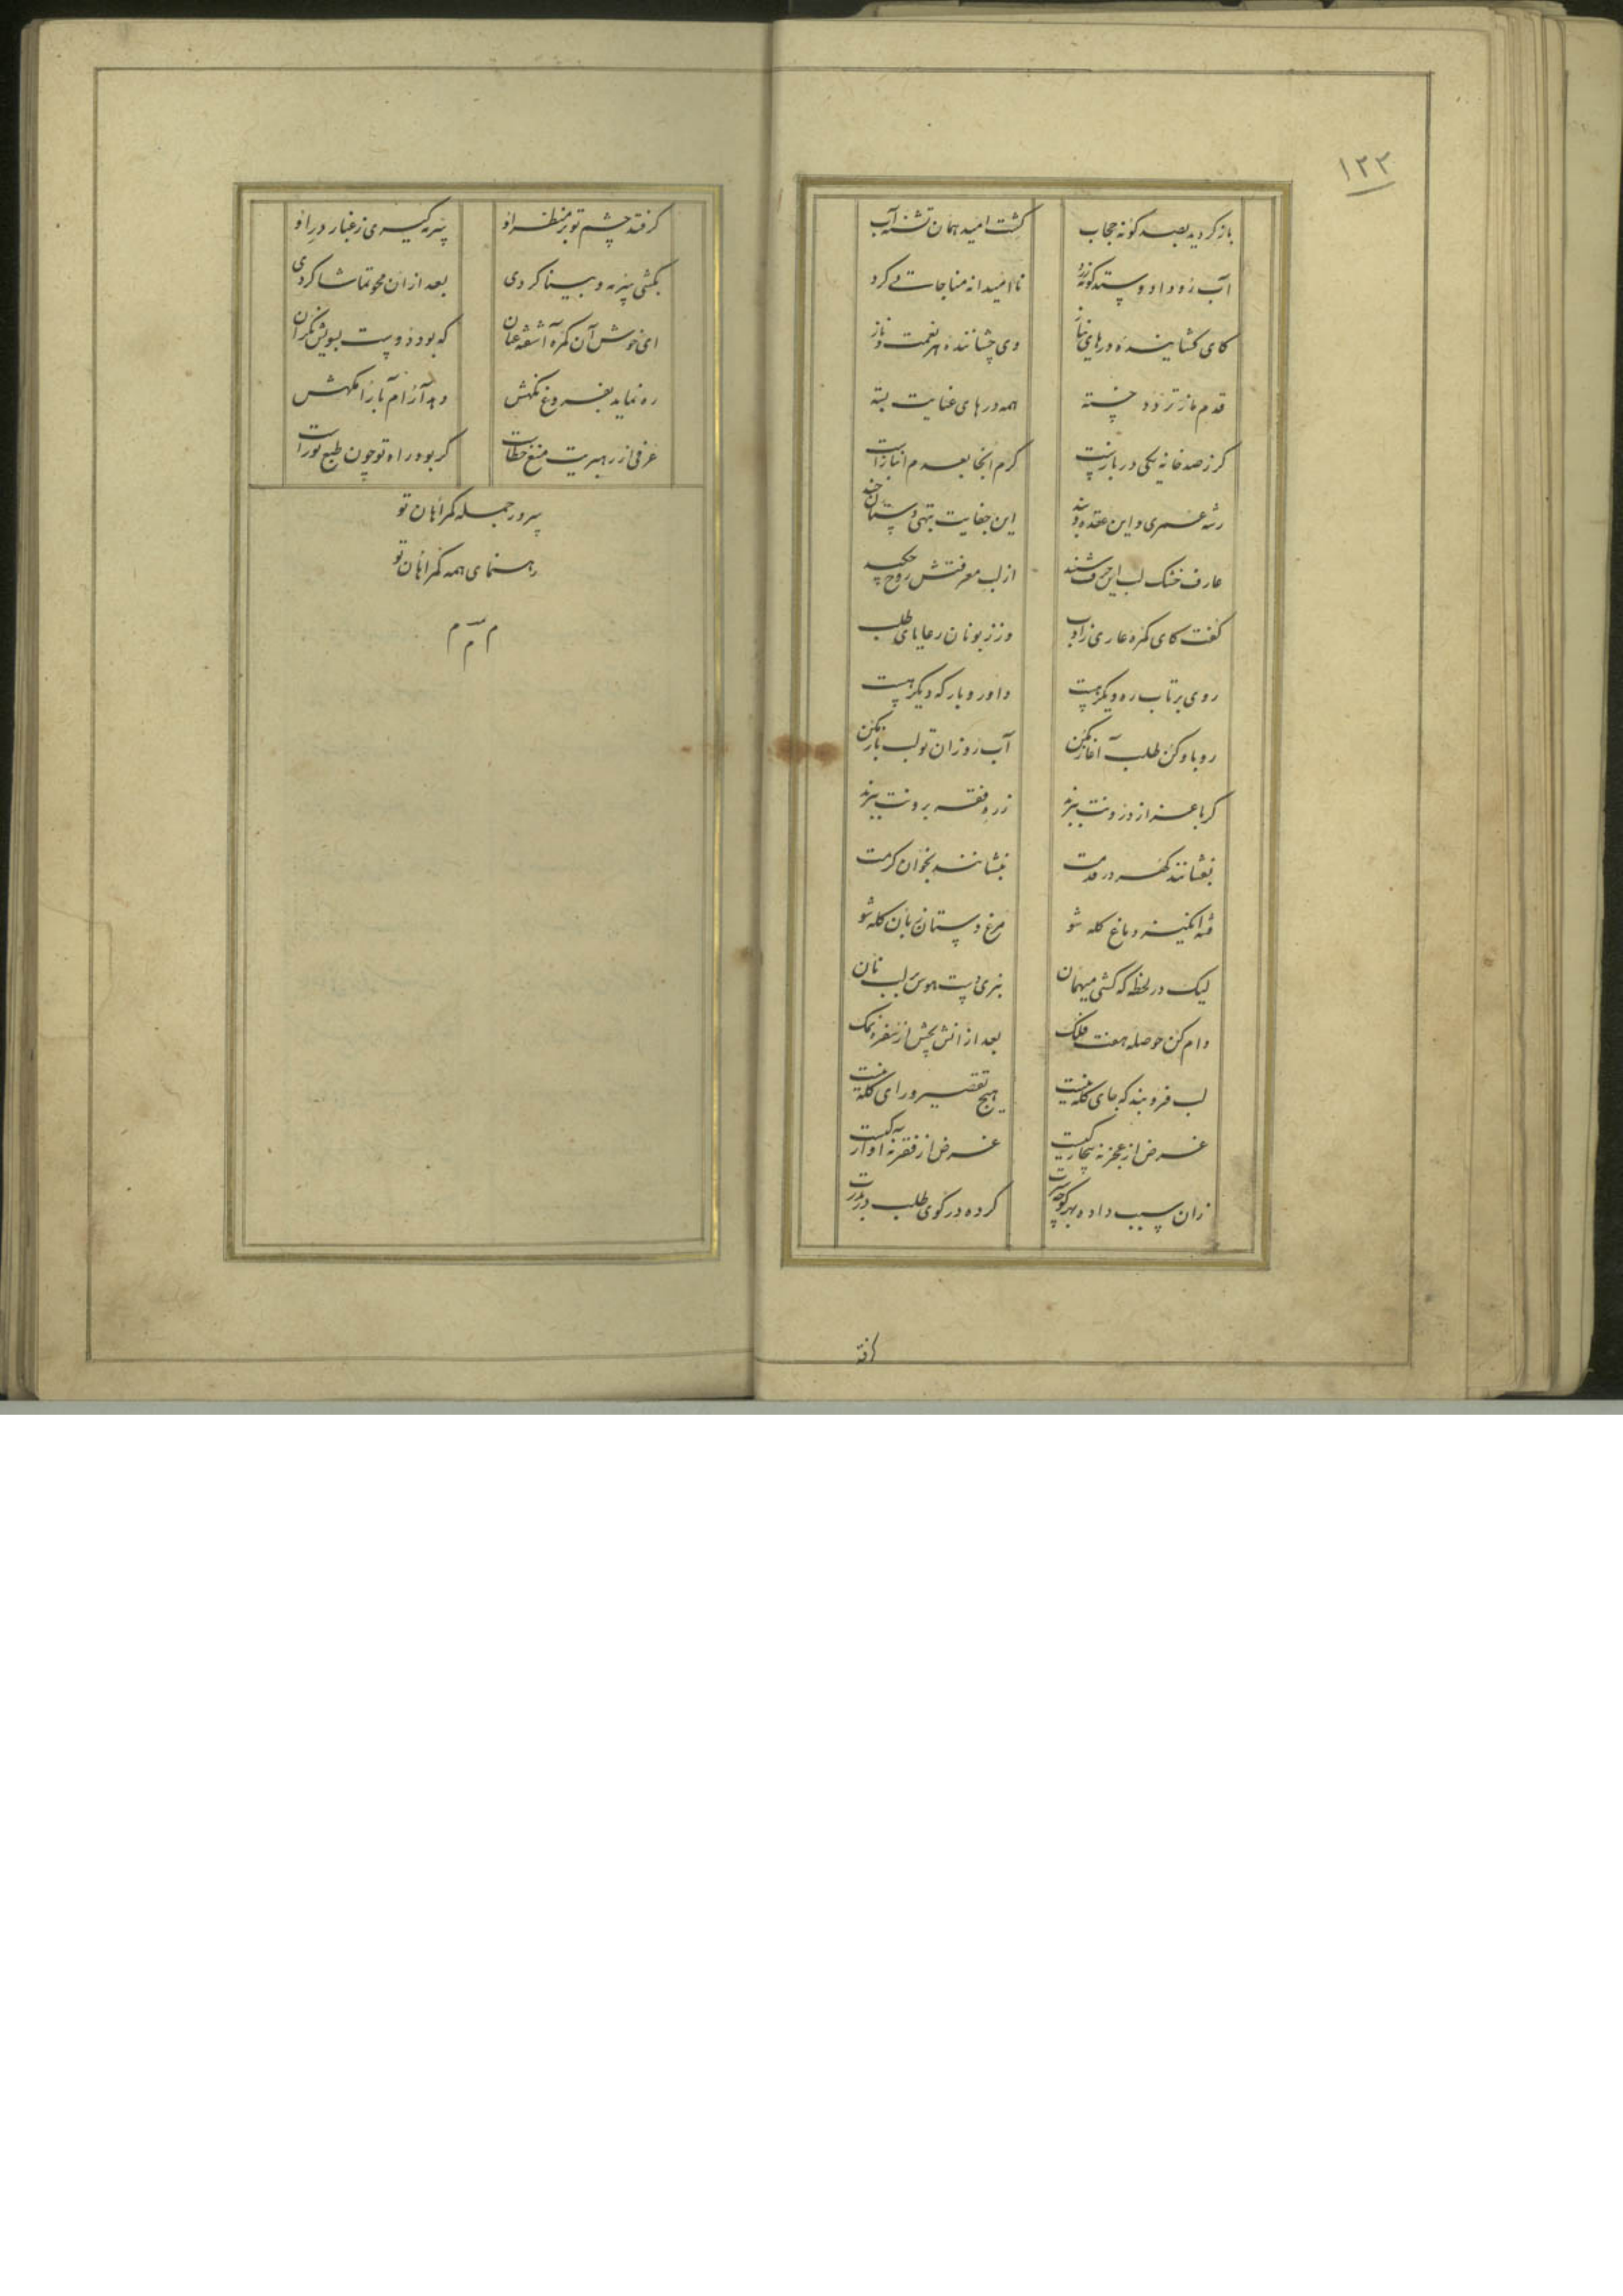 ۱۲۲
باز کردید بصد کونه حجاب
کشت امید همان تشنه آب
آب زو داد و
نا امیدانه مناجات می کرد
کای کشاینده درهای نیاز
وی چشاننده هر نعمت و ناز
قدم ماز تردد خسته
همه درهای عنایت بسته
کر ز صد خانه یکی در بازست
کرم آنجا بعدم انبازاست
رشه عمری و این عقده و بند
این جفایت تهی دستان چند
عارف خشک لب این حرف شنید
از لب معرفتش روح چکید
کفت کای کمره عاری ز ادب
وز زبونان رعایای طلب
روی برتاب ره دیکر هست
داور و بارکه دیکر هست
رو باو کن طلب آغاز مکن
آب روزان تو لب باز مکن
کر باعزاز درونت ببرند
زره فقه برونت ببرند
بفشانند کهر در قدمت
بنشانند بخوان کرمت
فتنه انکیز و باغ کله شو
مرغ دستان زبان کله شو
لیک در لحظه که کشی میهمان
نبری دست هوس لب نان
وام کن حوصله هفت فلک
بعد از انش بچش از سفره نمک
لب فرو بند که جای کله نیست
هیچ تقصیر ورای کله نیست
غرض از عجز نه بیچارکیست
غرض از فقر نه آوارکیست
زان سبب داده بهر کوچه
کرده در کوی طلب در بدرت
کرفتد چشم تو بر منظر او
پنبه کیری ز غبار در او
بکشی پنبه و بینا کردی
بعد ازان محو تماشا کردی
ای خوش آن کمره آشفته عنان
که بود دوست بسویش نکران
ره نماید بفروغ نکهش
وهد آرام
عرفی از رهبریت منع خطاست
کر بود راه تو چون طبع تو راست
پیرور جمله کمراهان تو
رهنمای همه کمراهان تو
م م م